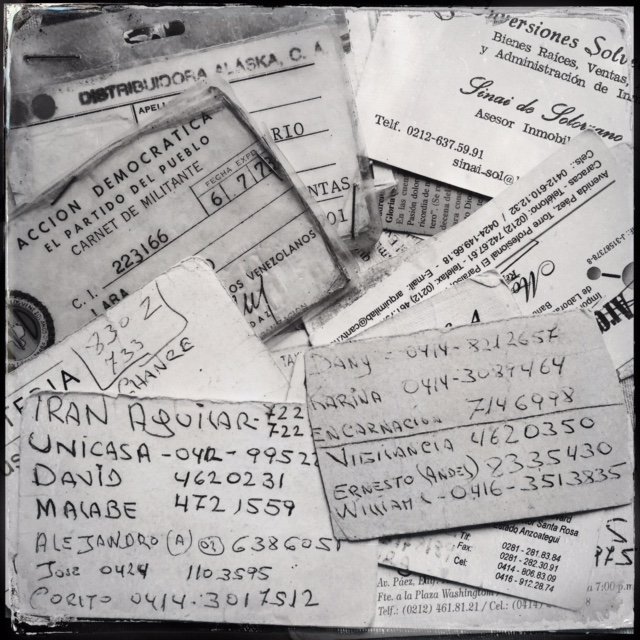 DISTRIBUIDORA ALASKA, C. A.
RIO
NTAS
01
ACCION DEMOCRATICA
EL PARTIDO DEL PUEBLO
CARNET DE MILITANTE
FECHA EXP
6 7 7
223166
C. I.
LARA
OS VENEZOLANOS
versiones Solv
Bienes Raíces, Ventas,
y Administración de In
Sinai de Solorzano
Asesor Inmobil
Telf. 0212-637.59.91
sinai-sol@
Avenida Páez, Torre Profesional El Paraíso
Caracas
Cels.: 0412-610.12.32 / 0424-149.66.18
E-mail:
8302
733
CHANCE
IRAN AGUILAR- 722
722
UNICASA -0412- 9952
DAVID 4620231
MALABE 4721559
ALEJANDRO (A) 01 6386051
JOSE 0424 1103595
CORITO 0414-3017512
DANY - 0414-8212657
KARINA 0414-3039464
ENCARNACION 7146998
VIGILANCIA 4620350
ERNESTO (ANDEL) 2335430
WILLIAMS -0416-3513835
Santa Rosa
Estado Anzoategui
Tlf: 0281 - 281.83.84
Fax: 0281 - 282.30.91
Cel: 0414 - 806.83.09
0416 - 912.28.74
Av. Páez,
Fte. a la Plaza Washington
Telf.: (0212) 461.81.21 / Cel.: (0414)
a 7:00 p.m